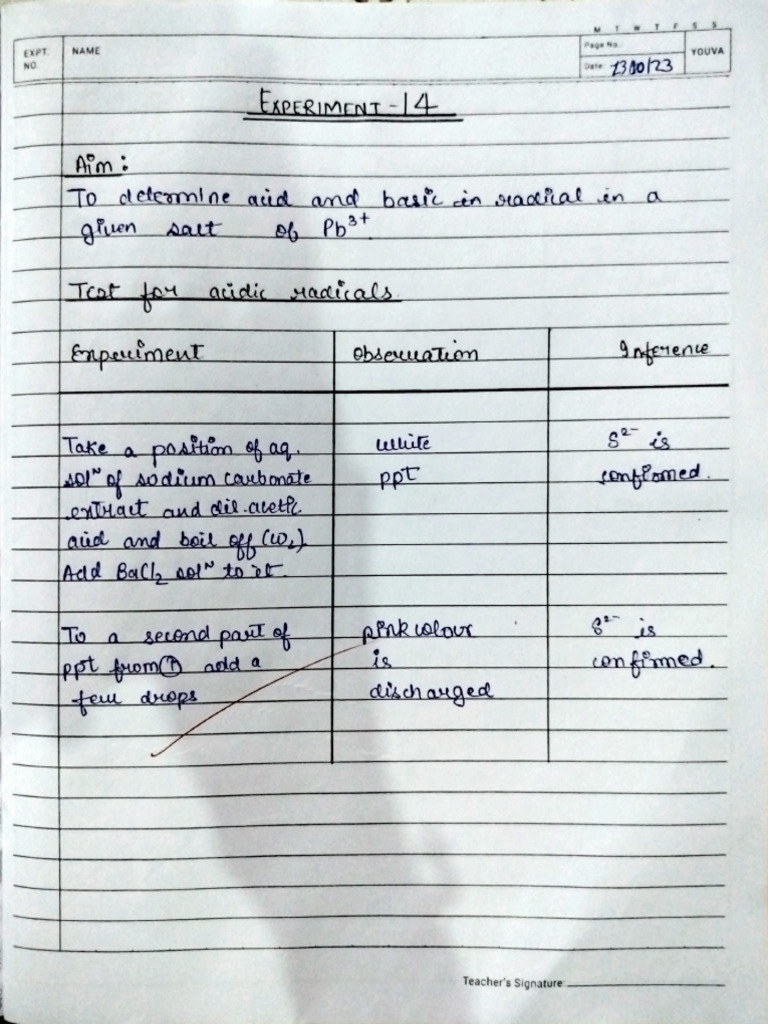 M T W T F S S
EXPT. NO.
NAME
Page No.:
Date: 13/10/23
YOUVA
EXPERIMENT-14
Aim:
To determine acid and basic in radical in a
given salt of Pb³⁺
Test for acidic radicals.
Experiment Observation Inference
Take a position of aq. white S²⁻ is
solⁿ of sodium carbonate ppt confirmed.
extract and dil. acetic
acid and boil off (CO₂).
Add BaCl₂ solⁿ to it.
To a second part of pink colour S²⁻ is
ppt from ① add a is confirmed.
few drops discharged
Teacher's Signature: